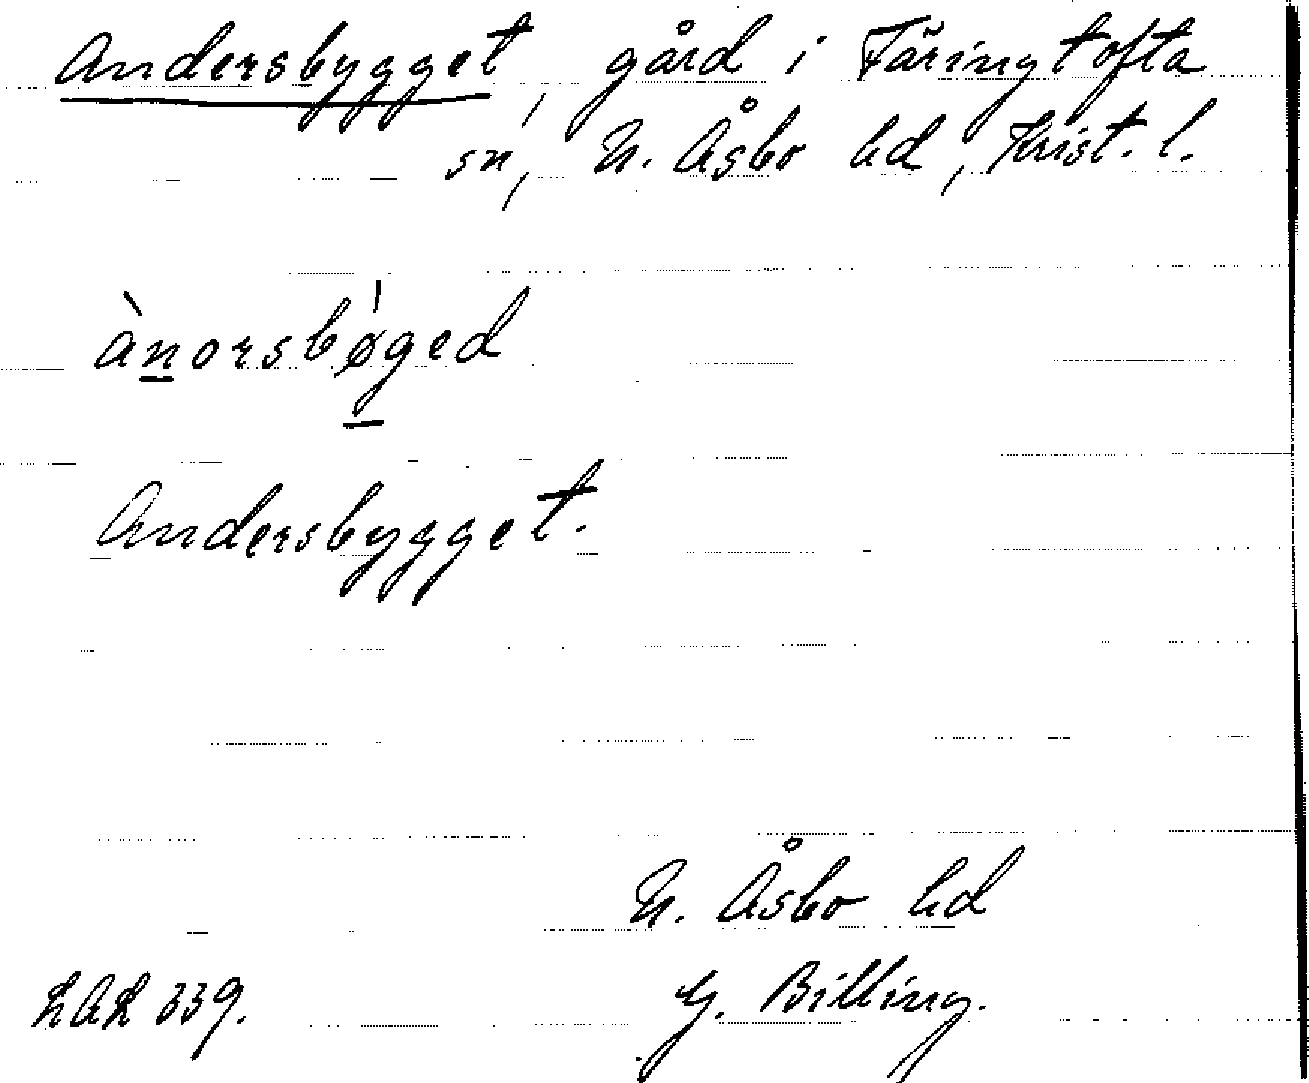 Andersbygget, gård i Färingtofta
sn, N. Åsbo hd, Krist. l.
ànorsbøged
Andersbygget.
N. Åsbo hd
LAL 339. G. Billing.